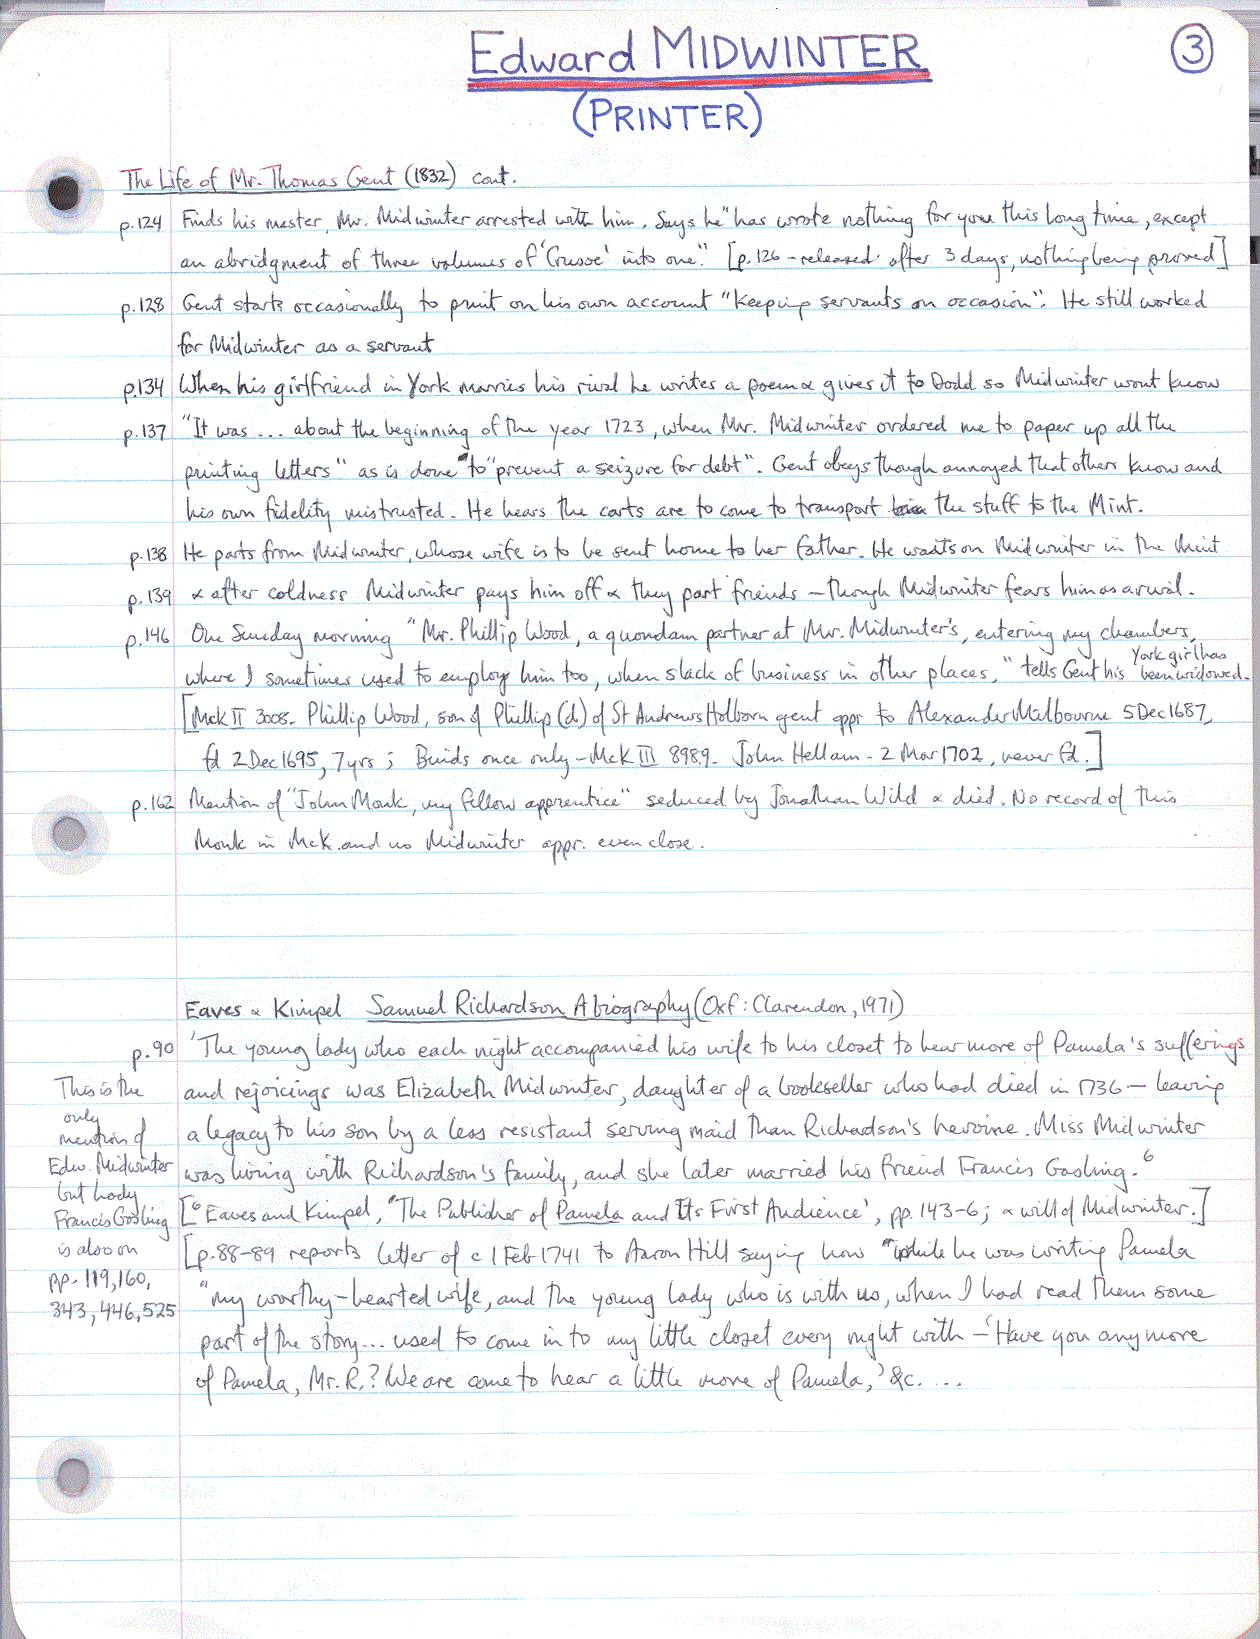 Edward MIDWINTER
3
(PRINTER)
The Life of Mr. Thomas Gent (1832) cont.
p.124 Finds his master, Mr. Midwinter arrested with him. Says he "has wrote nothing for you this long time, except
an abridgment of three volumes of 'Crusoe' into one." [p.126 - released after 3 days, nothing being proved]
p.128 Gent starts occasionally to print on his own account "keeping servants on occasion". He still worked
for Midwinter as a servant
p.134 When his girlfriend in York marries his rival he writes a poem & gives it to Dodd so Midwinter wont know
p.137 "It was ... about the beginning of the year 1723, when Mr. Midwinter ordered me to paper up all the
printing letters" as is done "to "prevent a seizure for debt". Gent obeys though annoyed that others know and
his own fidelity mistrusted. He hears the carts are to come to transport the stuff to the Mint.
p.138 He parts from Midwinter, whose wife is to be sent home to her father. He waits on Midwinter in the Mint
p.139 & after coldness Midwinter pays him off & they part friends - though Midwinter fears him as a rival.
p.146 One Sunday morning "Mr. Phillip Wood, a quondam partner at Mr. Midwinter's, entering my chambers,
where I sometimes used to employ him too, when slack of business in other places," tells Gent his York girl has been widowed.
[McK II 3008. Phillip Wood, son of Phillip (d) of St Andrews Holborn gent appr to Alexander Milbourne 5 Dec 1687,
fd 2 Dec 1695, 7yrs; Binds once only - McK III 8989. John Hellam - 2 Mar 1702, never fd.]
p.162 Mention of "John Monk, my fellow apprentice" seduced by Jonathan Wild & died. No record of this
Monk in McK. and no Midwinter appr. even close.
Eaves & Kimpel Samuel Richardson A biography (Oxf: Clarendon, 1971)
p.90 'The young lady who each night accompanied his wife to his closet to hear more of Pamela's sufferings
and rejoicings was Elizabeth Midwinter, daughter of a bookseller who had died in 1736 - leaving
a legacy to his son by a less resistant serving maid than Richardson's heroine. Miss Midwinter
was living with Richardson's family, and she later married his friend Francis Gosling.6
[6 Eaves and Kimpel, "The Publisher of Pamela and Its First Audience', pp. 143-6; & will of Midwinter.]
[p.88-89 reports letter of c 1 Feb 1741 to Aaron Hill saying how "while he was writing Pamela
"my worthy-hearted wife, and the young lady who is with us, when I had read them some
part of the story... used to come in to my little closet every night with - 'Have you any more
of Pamela, Mr. R.? We are come to hear a little more of Pamela,' &c. ...
This is the
only
mention of
Edw. Midwinter
but Lady
Francis Gosling
is also on
pp. 119, 160,
343, 446, 525